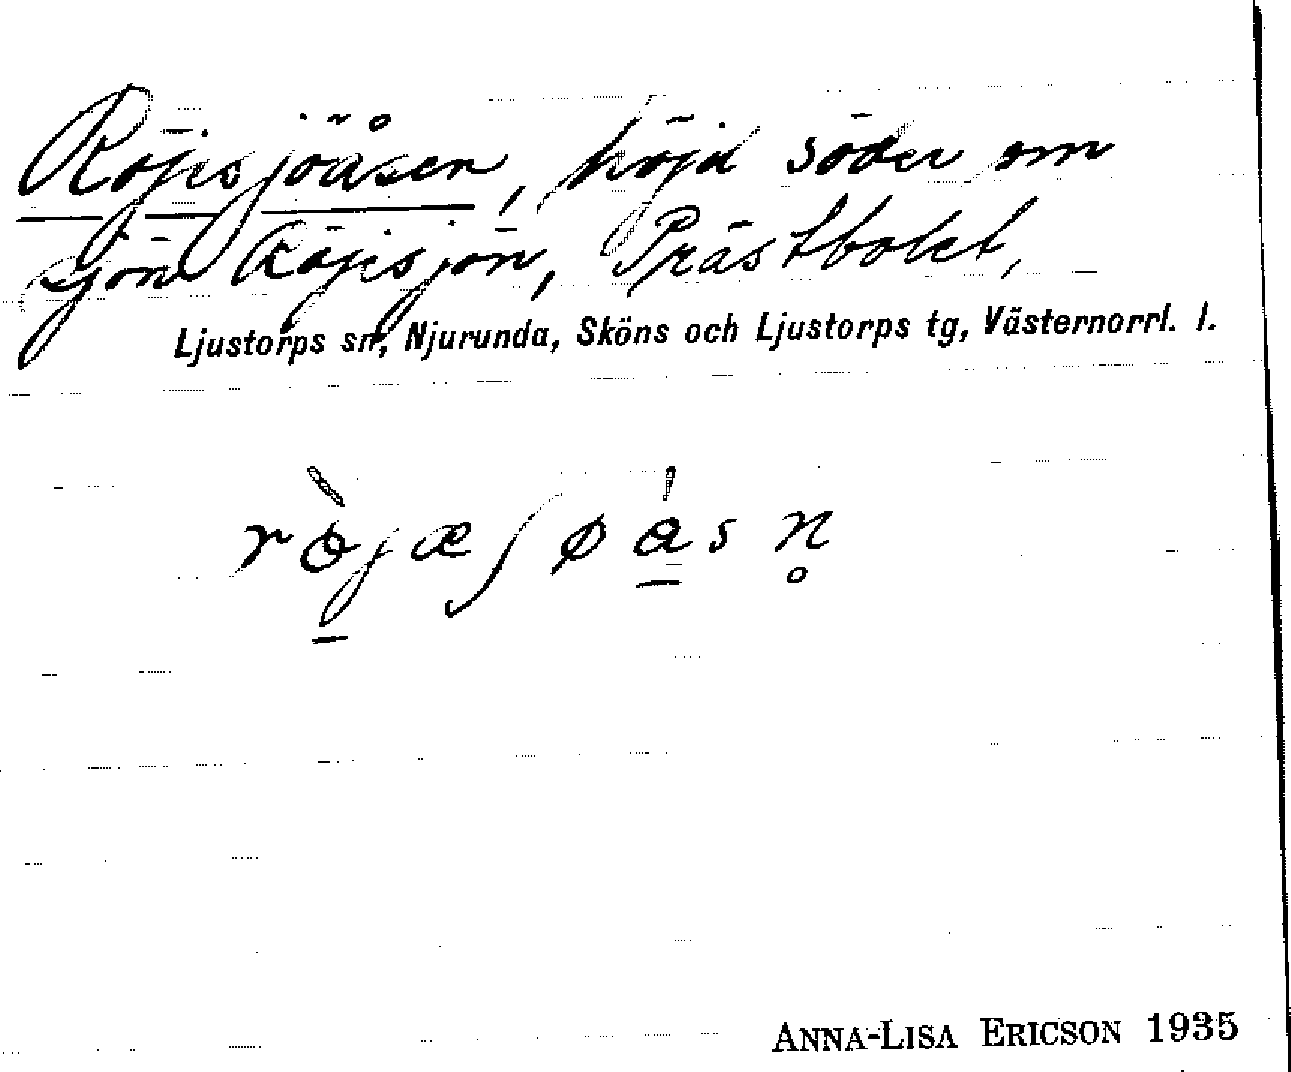 Röjesjöåsen, höjd söder om
sjön Röjesjön, Prästbolet,
Ljustorps sn, Njurunda, Sköns och Ljustorps tg, Västernorrl. l.
rò̱jæʃøá̱sn̥
ANNA-LISA ERICSON 1935